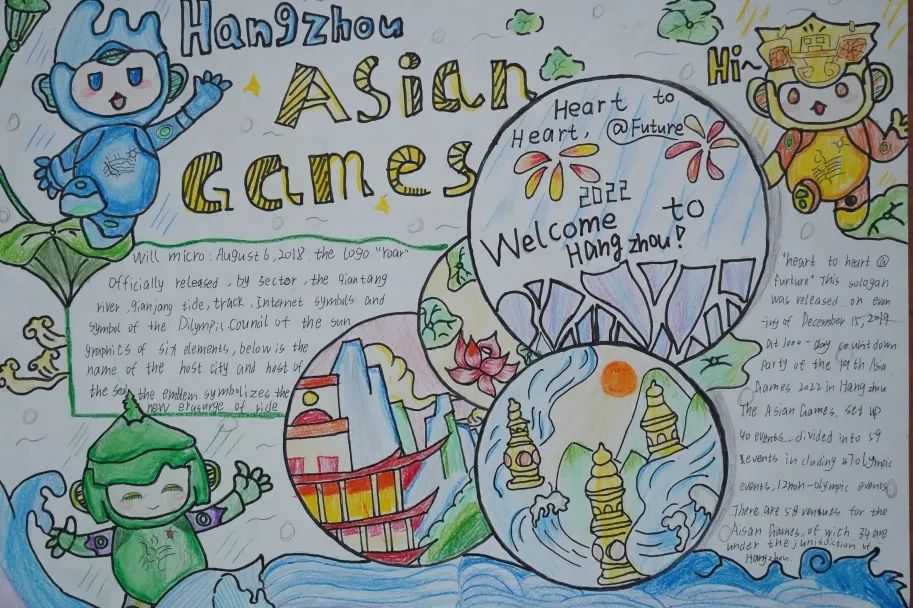 Hangzhou
Asian
Games
Hi~
Heart to
Heart, @Future
2022
Welcome to
Hangzhou!
Will micro: August 6, 2018, the logo "roar"
Officially released, by sector, the qiantang
river, qianjang tide, track, Internet symbols and
symbol of the Dilympic Council of the sun
graphics of six elements, below is the
name of the host city and host of
the the emblem symbolizes the
new erasurge of
"heart to heart @
furture" This sologan
was released on even
-ing of December 15, 2019
at 1000-day countdown
party of the 19th Asia
Games 2022 in Hangzhou
The Asian Games, set up
40 events divided into 59
events in cluding 47 olympic
events, 12 non-olympic events
There are 58 venues for the
Aisan Games, of wich 34 are
under the jurisdiction of
Hangzhou.